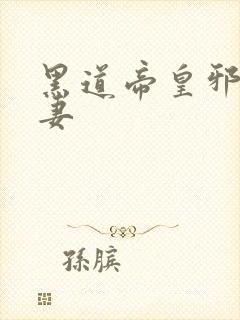 黑道帝皇邪
妻
孫臏